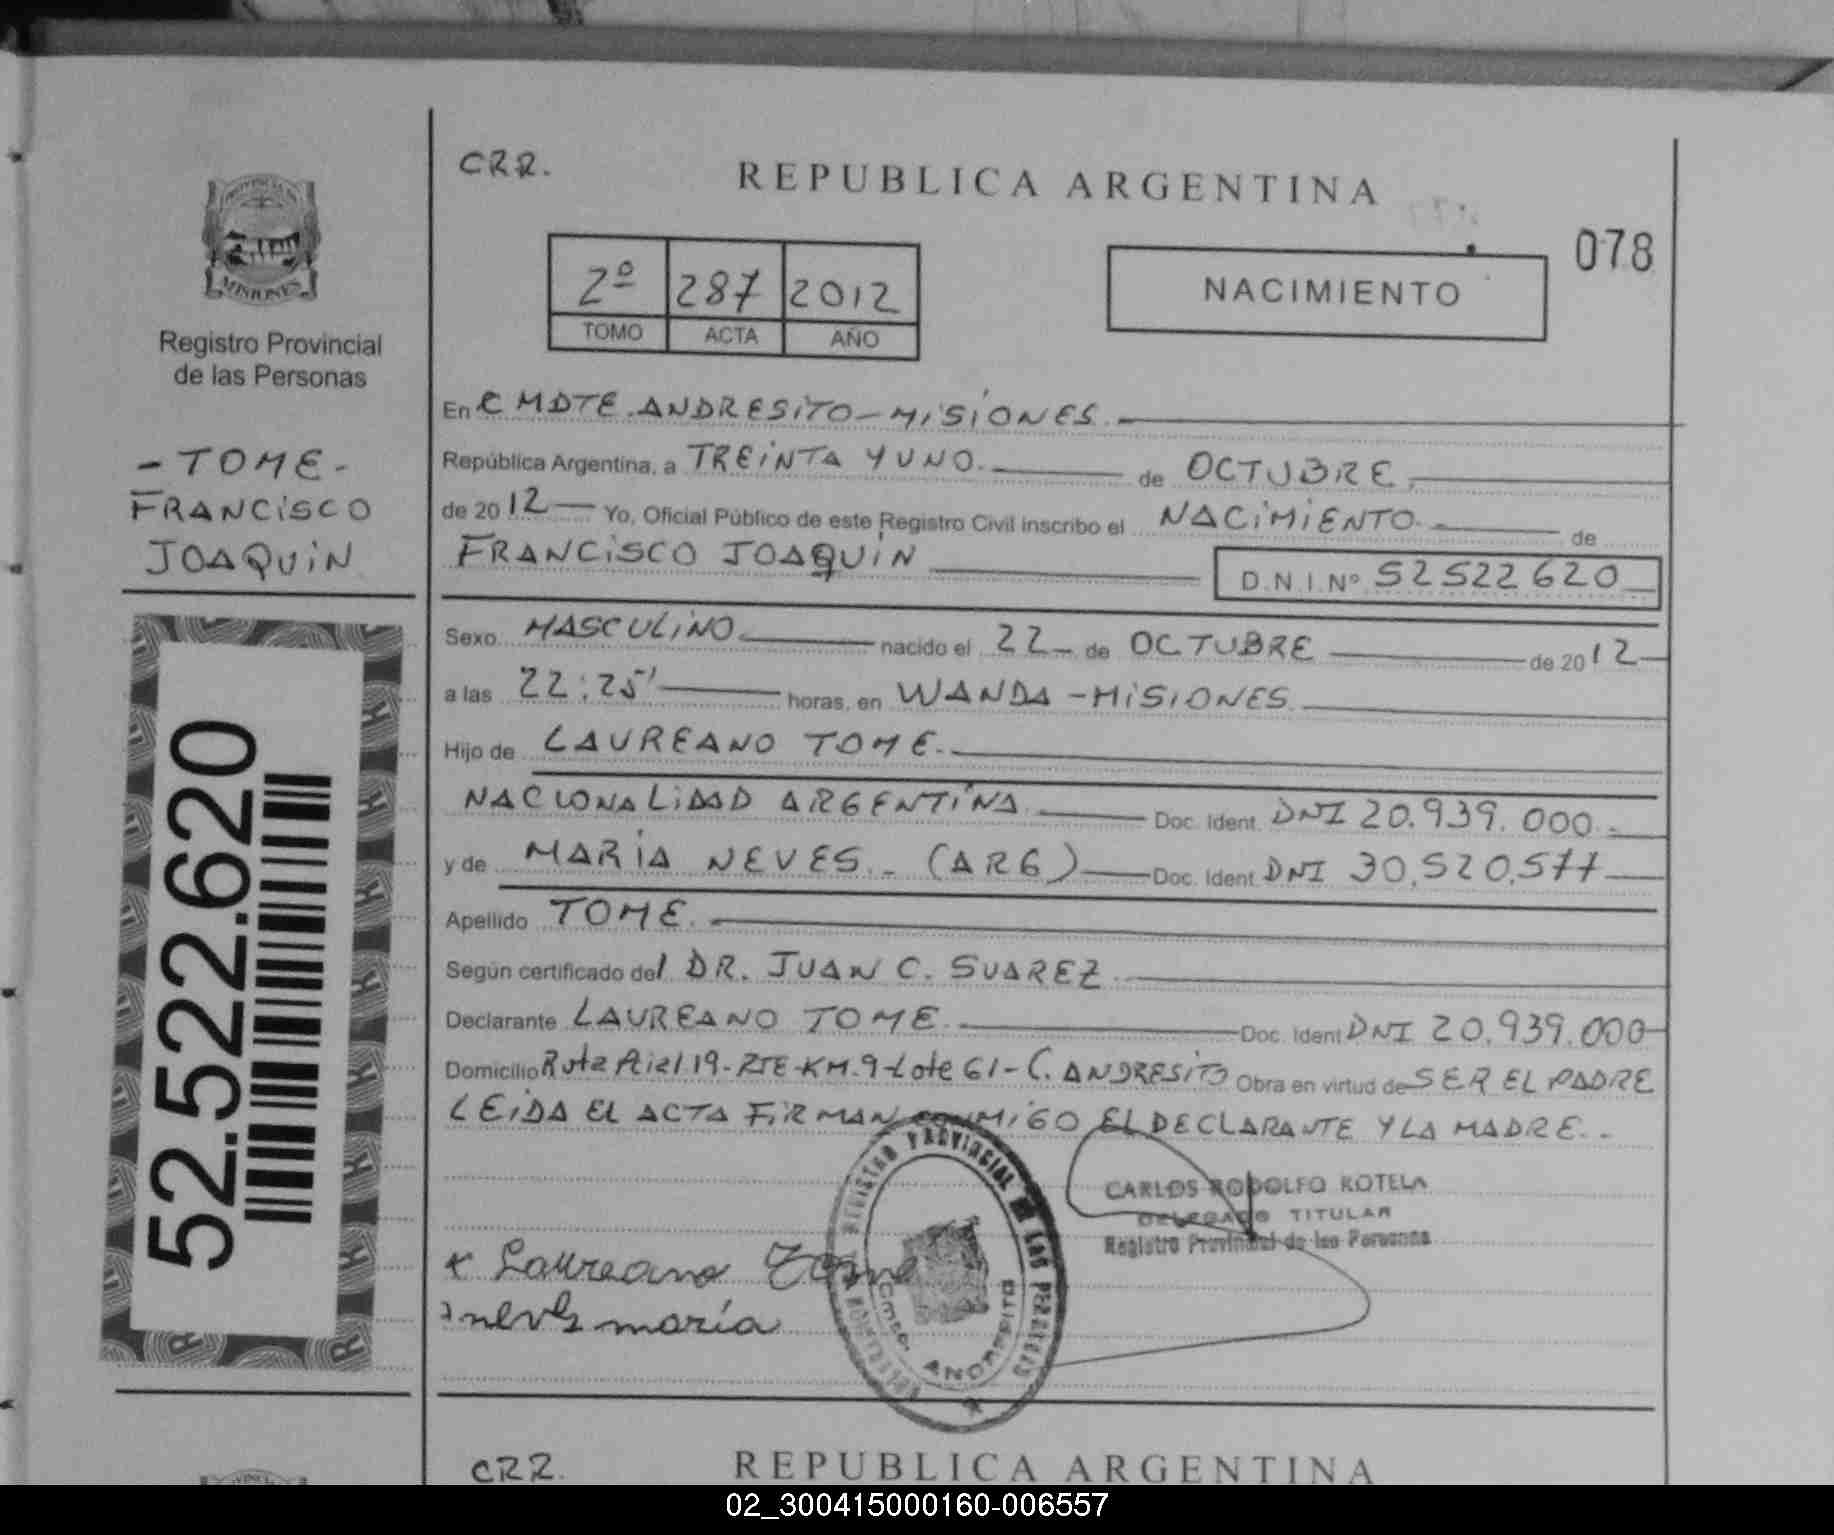 CRR.
REPUBLICA ARGENTINA
078
MISIONES
Registro Provincial
de las Personas
- TOME -
FRANCISCO
JOAQUIN
52.522.620
2º 287 2012
TOMO ACTA AÑO
NACIMIENTO
En CMDTE. ANDRESITO - MISIONES.
República Argentina, a TREINTA Y UNO. de OCTUBRE.
de 2012 Yo, Oficial Público de este Registro Civil inscribo el NACIMIENTO. de
FRANCISCO JOAQUIN D.N.I.Nº 52522620
Sexo MASCULINO. nacido el 22 de OCTUBRE de 2012
a las 22:25' horas, en WANDA - MISIONES.
Hijo de LAUREANO TOME.
NACIONALIDAD ARGENTINA. Doc. Ident. DNI 20.939.000.
y de MARIA NEVES. - (ARG) Doc. Ident. DNI 30.520.577
Apellido TOME.
Según certificado del DR. JUAN C. SUAREZ
Declarante LAUREANO TOME. Doc. Ident DNI 20.939.000
Domicilio Ruta Pcial 19 - RTE - KM. 9 - Lote 61 - C. ANDRESITO Obra en virtud de SER EL PADRE
LEIDA EL ACTA FIRMAN CONMIGO EL DECLARANTE Y LA MADRE. -
CARLOS RODOLFO ROTELA
DELEGADO TITULAR
Registro Provincial de las Personas
x Laureano Tome
neves maría
REGISTRO PROVINCIAL DE LAS PERSONAS
CMDO. ANDRESITO
CRR.
REPUBLICA ARGENTINA
02_300415000160-006557